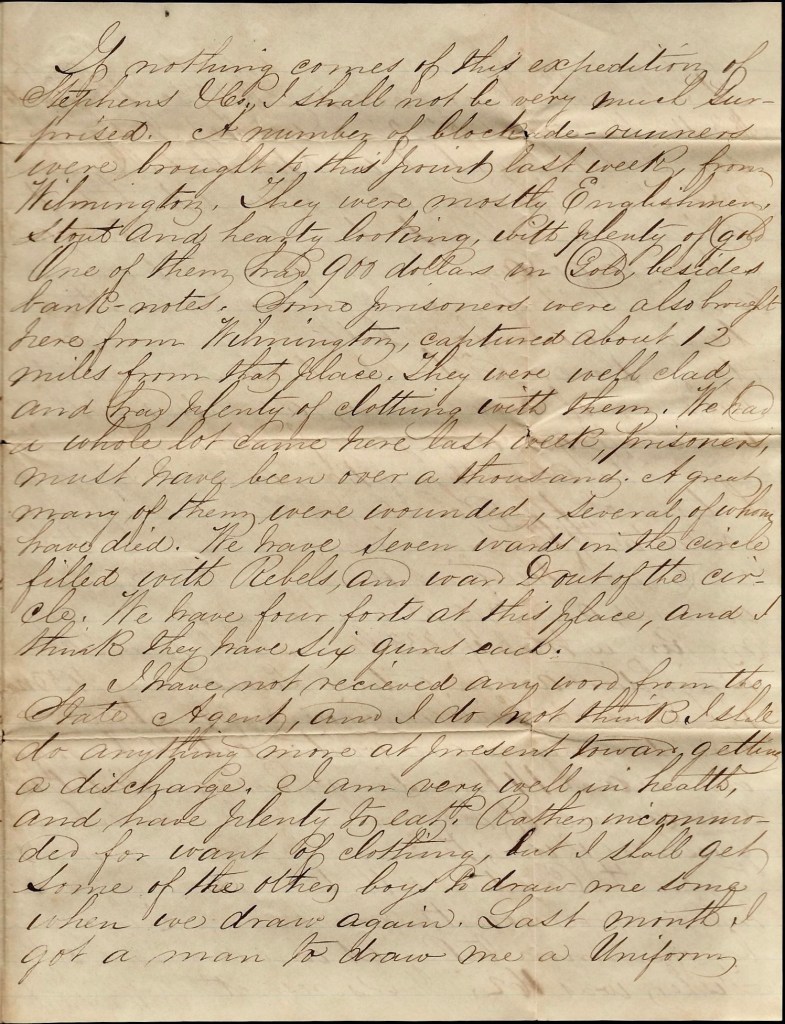 If nothing comes of this expedition of
Stephens & Co., I shall not be very much sur-
prised. A number of blockade-runners
were brought to this point last week, from
Wilmington. They were mostly Englishmen,
stout and hearty looking, with plenty of gold
One of them had 900 dollars in Gold, besides
bank-notes. Some prisoners were also brought
here from Wilmington, captured about 12
miles from that place. They were well clad,
and had plenty of clothing with them. We had
a whole lot came here last week, prisoners,
must have been over a thousand. A great
many of them were wounded, several of whom
have died. We have seven wards in the circle
filled with Rebels, and ward D out of the cir-
cle. We have four forts at this place, and I
think they have six guns each.
I have not recieved any word from the
State Agent, and I do not think I shall
do anything more at present toward getting
a discharge. I am very well in health,
and have plenty to eat. Rather incommo-
ded for want of clothing, but I shall get
some of the other boys to draw me some
when we draw again. Last month I
got a man to draw me a Uniform